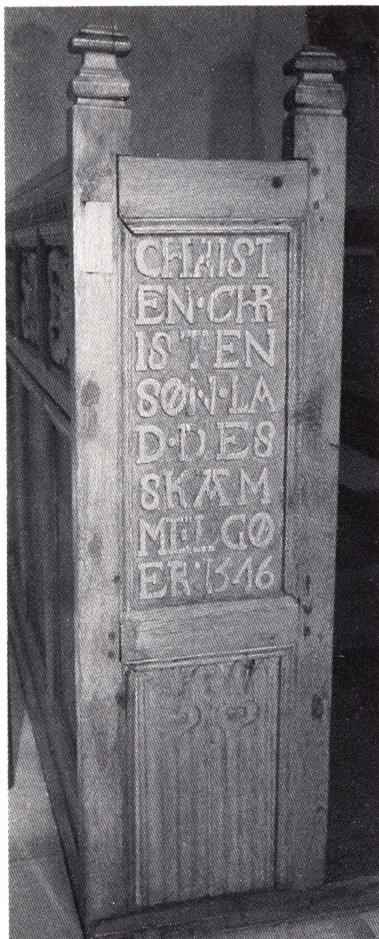 CHRIST
EN·CHR
ISTEN
SØN·LA
D·DES
SKÆM
MELGØ
ER·1546